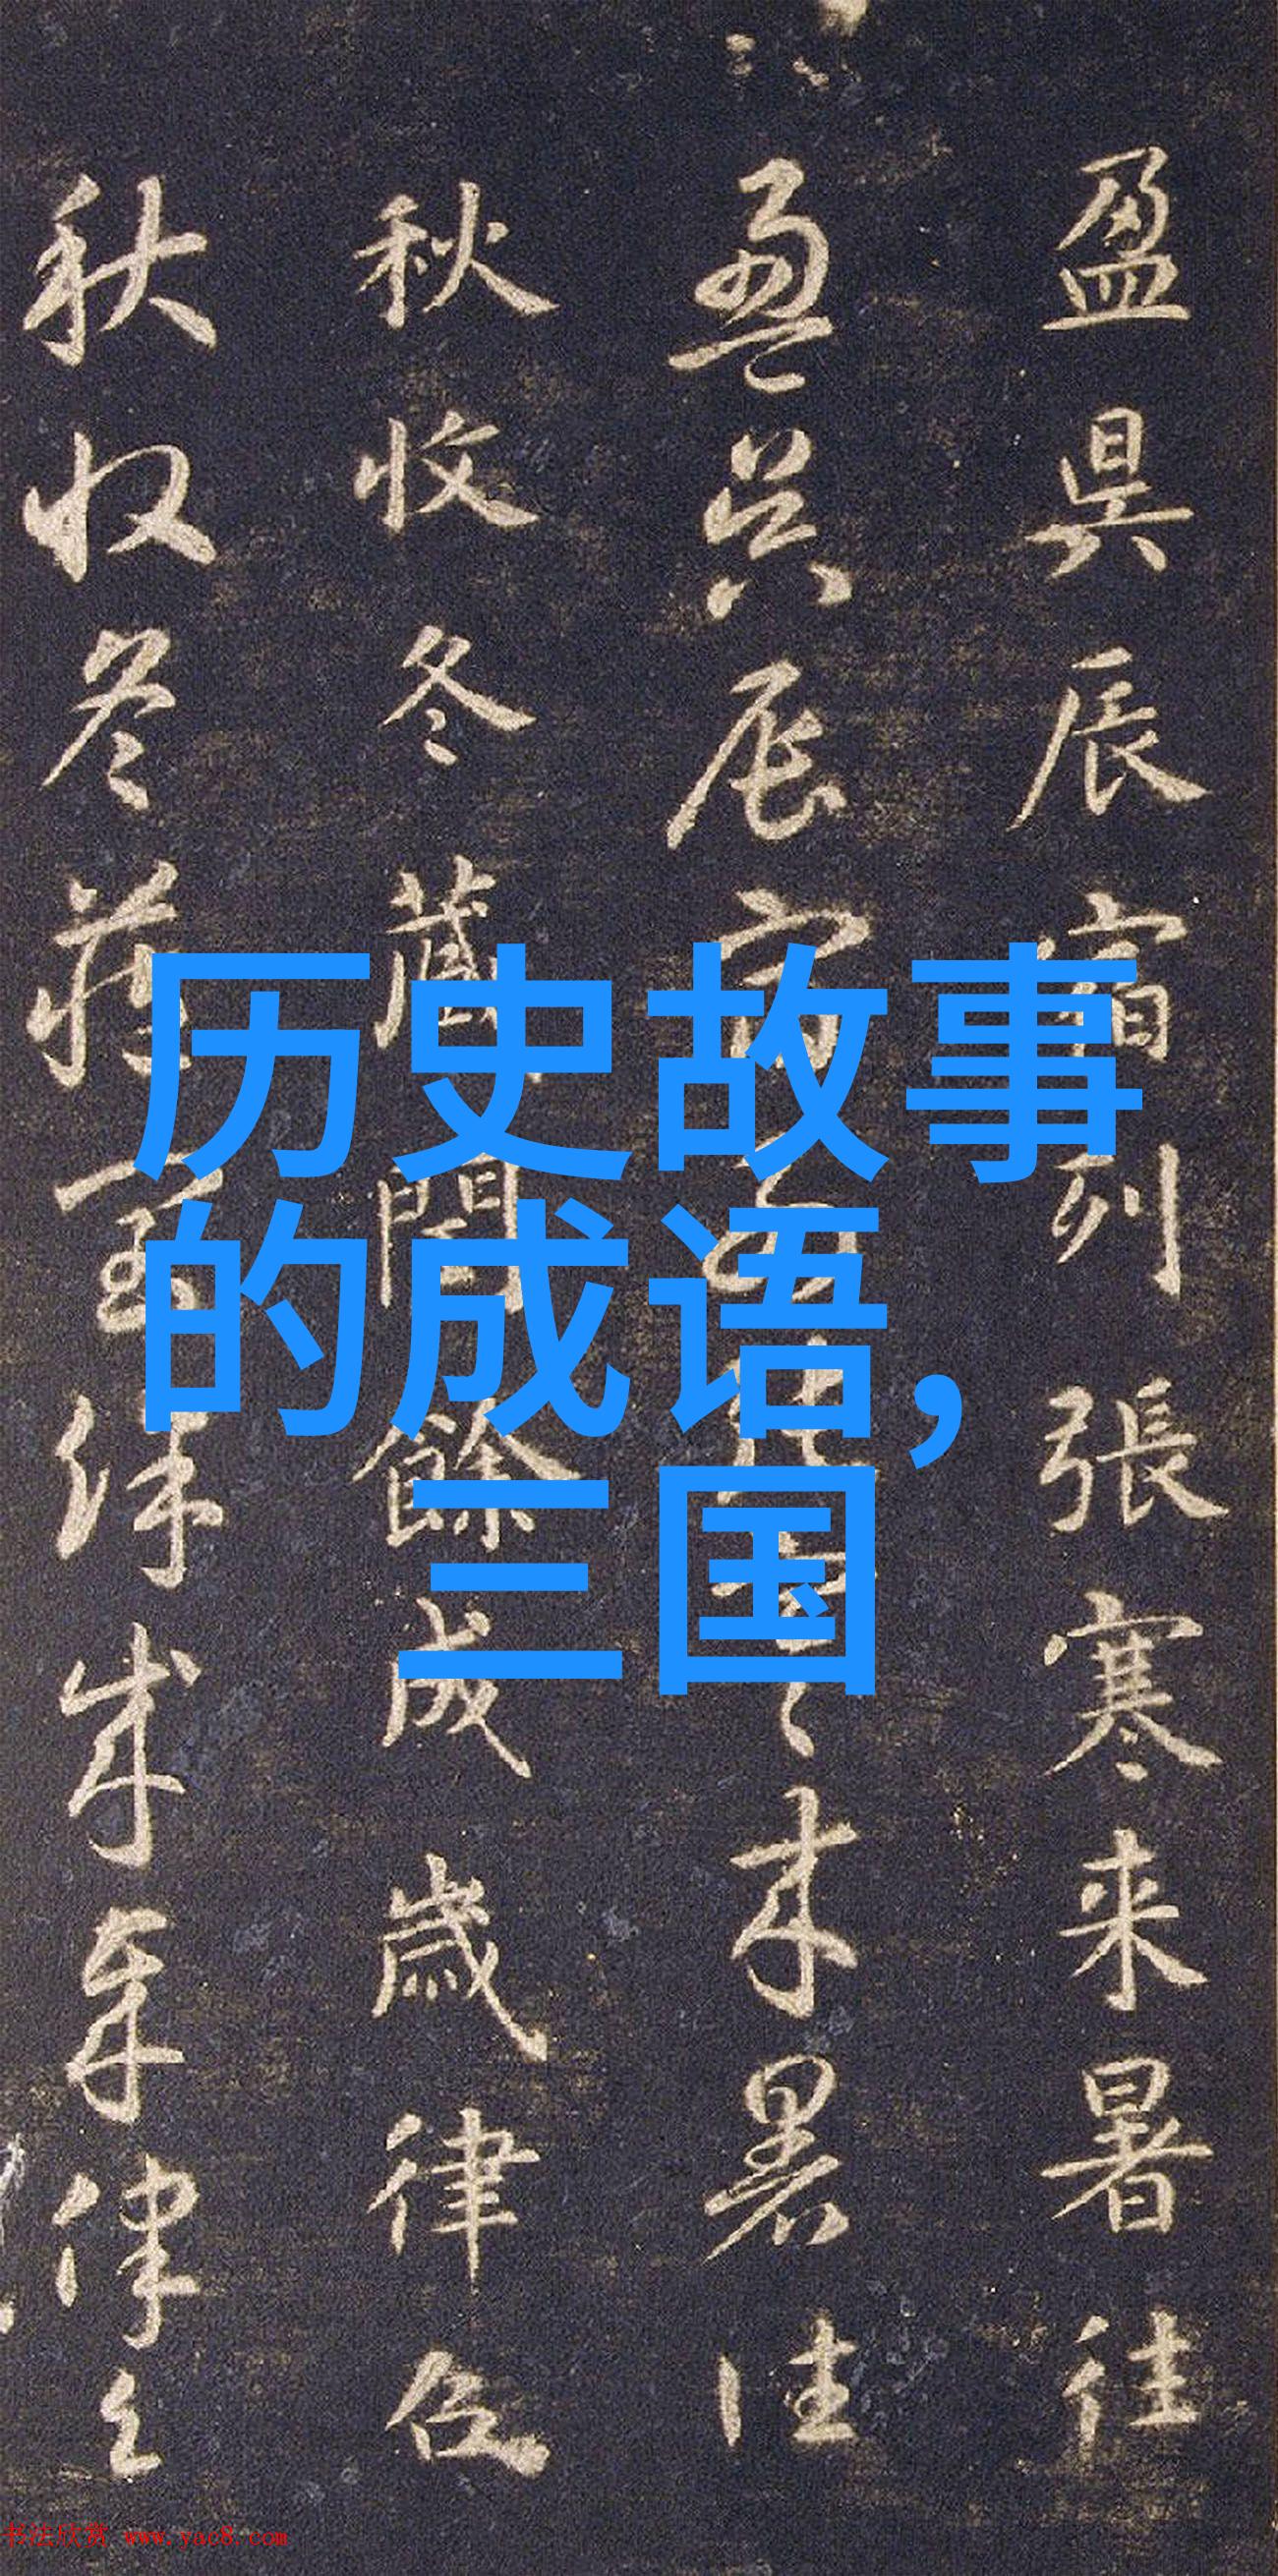 历史故事
的成语,
三国
盈昃辰宿列張寒来暑往
盈昃辰宿来暑往
秋收冬藏閏餘成歲律吕
秋收冬藏閏餘成歲律吕
书法欣赏 www.yac8.com